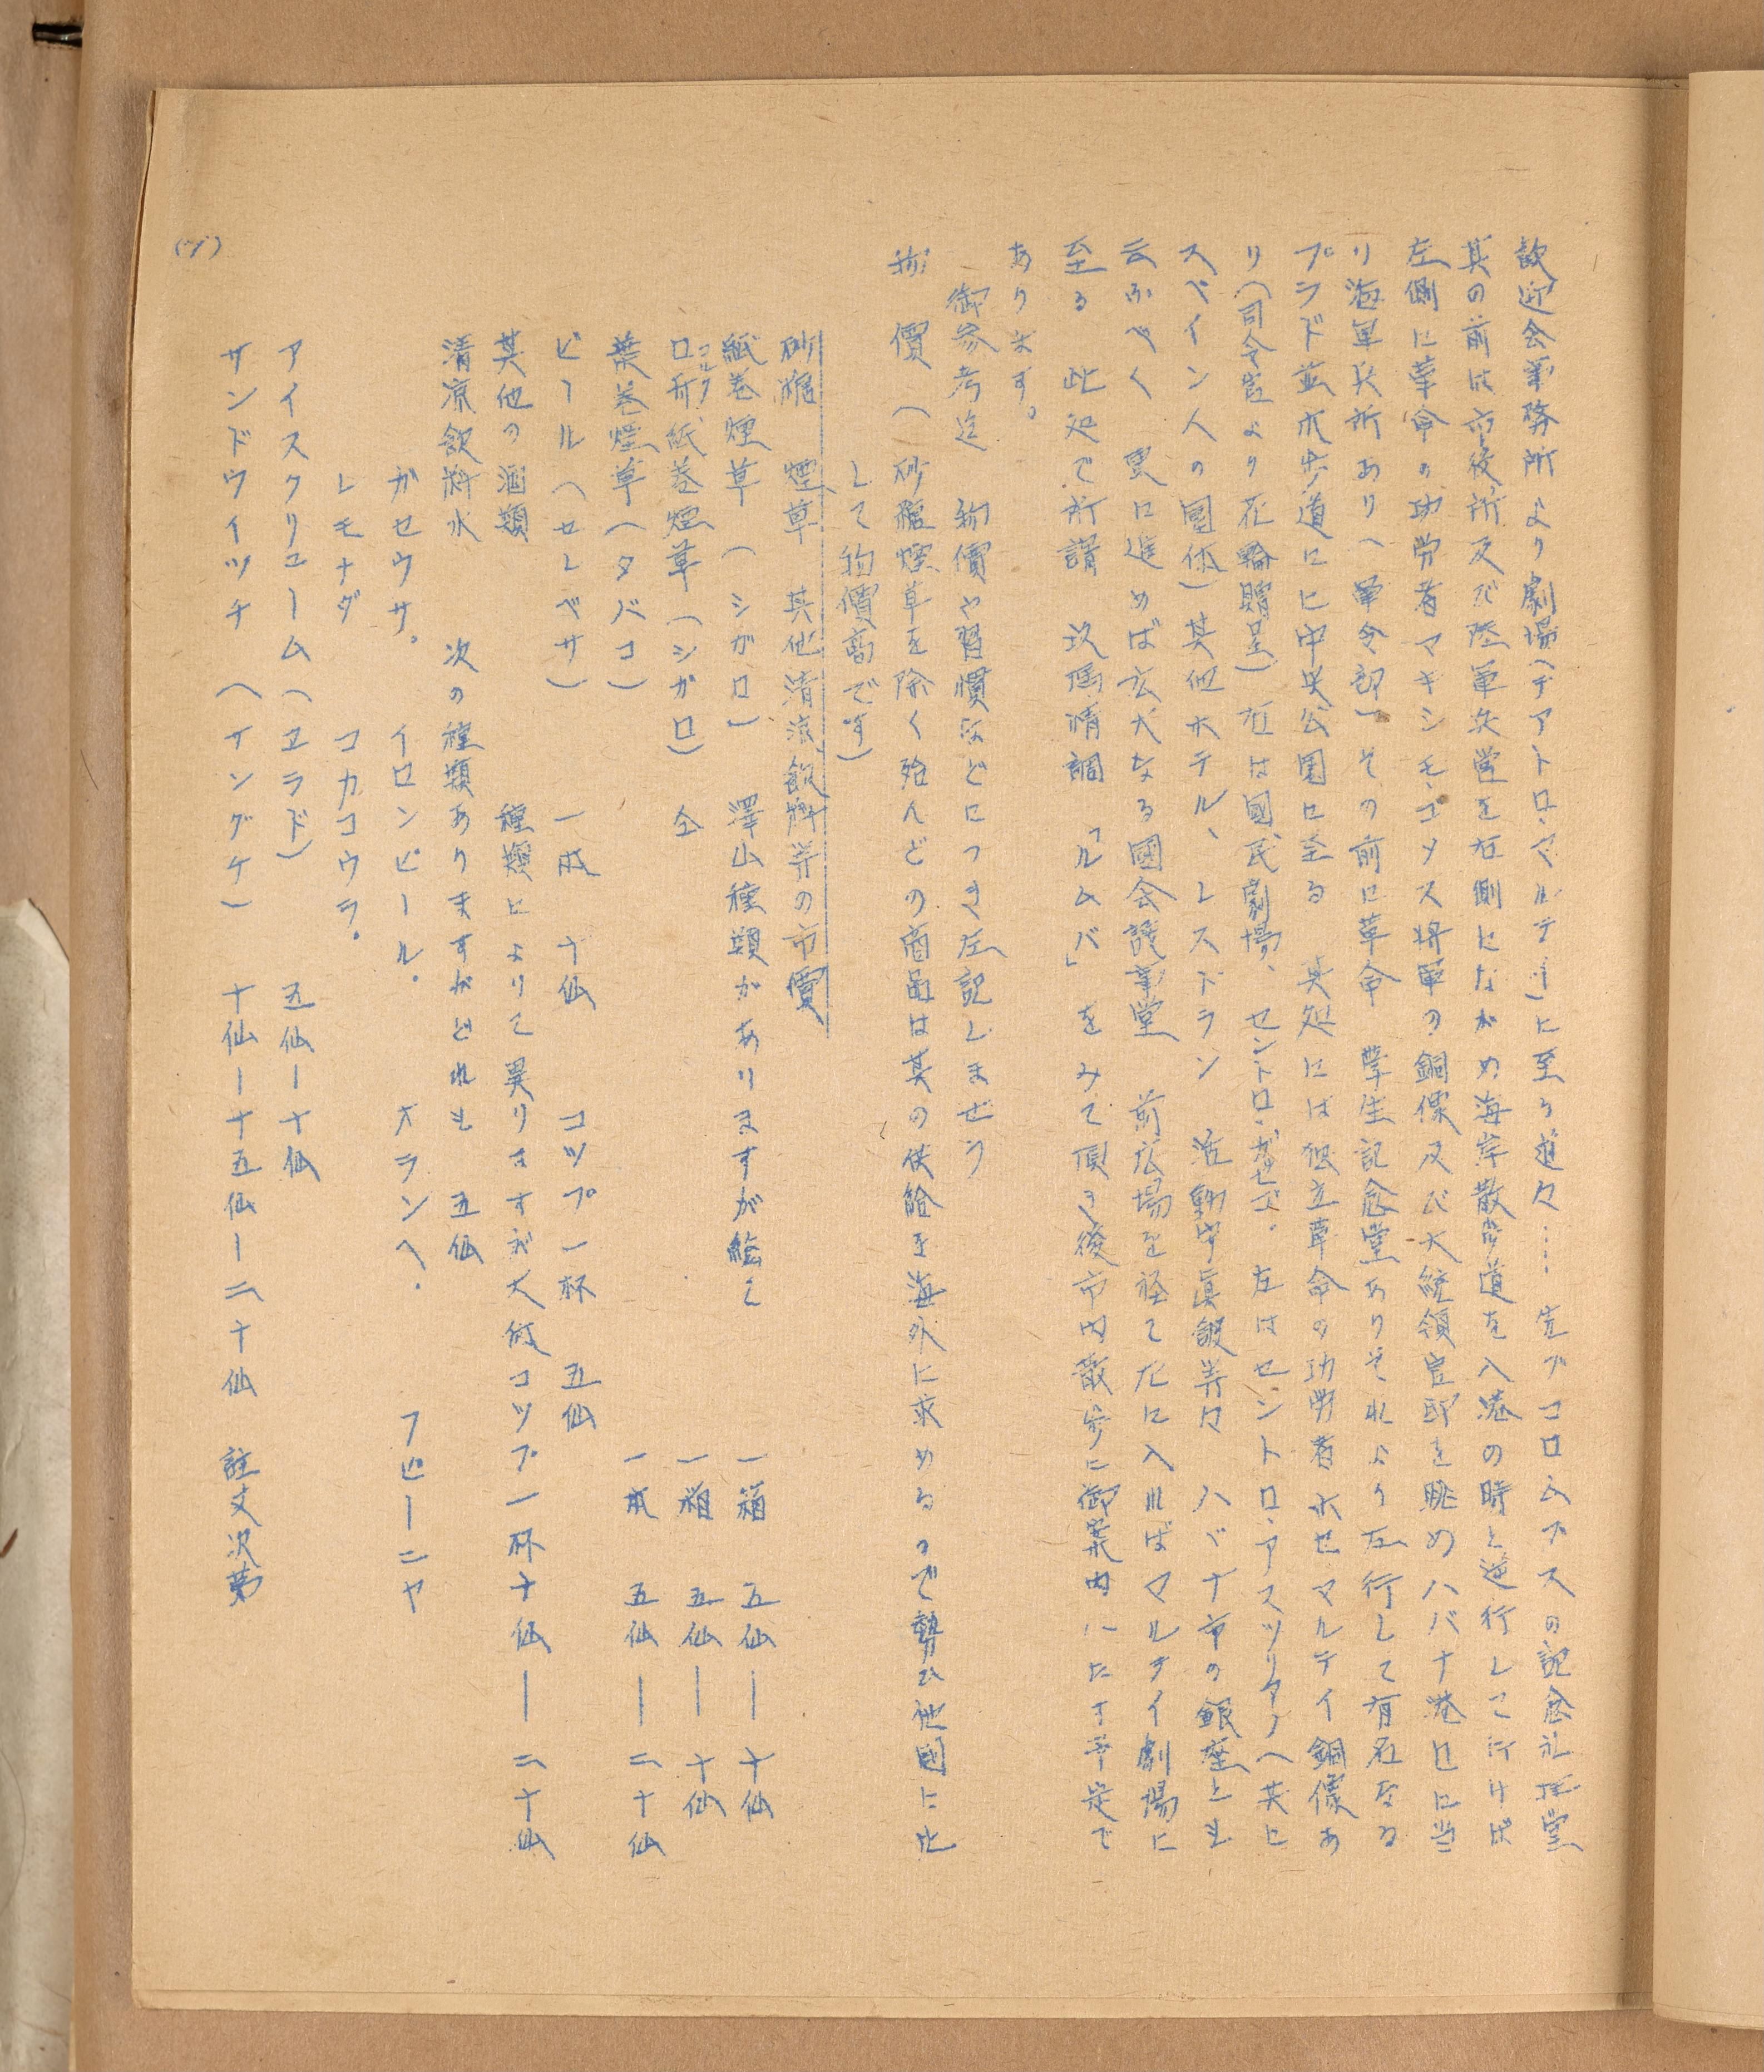 歓迎会事務所より劇場(テアトロ、マルテイー)に至る道々…… 先づコロムブスの記念礼拝堂
其の前は市役所及び陸軍兵営を右側にながめ海岸散歩道を入港の時と逆行して行けば
左側に革命の功労者マキシモ、ゴメス将軍の銅像及び大統領官邸を眺めハバナ港口に当
り海軍兵所あり(軍令部)その前に革命 学生記念堂ありそれより左行して有名なる
プラド並木歩道に に中央公園に至る 其処には独立革命の功労者ホセマルテイ銅像あ
り(司令官より花輪贈呈)右は國民劇場、セントロ、ガセゴ. 左はセントロ、アスツリアノ(共に
スペイン人の團体)其他ホテル、レストラン 活動寫眞舘等々 ハバナ市の銀座とも
云ふべく 更に進めば宏大なる國会議事堂 前広場を経て左に入ればマルテイ劇場に
至る 此処で所謂 玖馬情調 「ルムバ」 をみて頂き後市内散歩に御案内いたす予定で
あります。
御参考迄 物價や習慣などにつき左記しませう
物 價 (砂糖煙草を除く殆んどの商品は其の供給を海外に求めるので勢ひ他國に比
して物價高です)
砂糖 煙草 其他清涼飲料等の市價
紙巻煙草 (シガロ) 澤山種類がありますが総て 一箱 五仙―十仙
コルク
口形紙巻煙草(シガロ) 仝 一箱 五仙―十仙
葉巻煙草(タバコ) 一本 五仙―二十仙
ビール(セレベサ) 一本 十仙 コツプ一杯 五仙
其他の酒類 種類によりて異りますが大低コツプ一杯十仙―二十仙
清涼飲料水 次の種類ありますがどれも 五仙
ガセウサ。 イロンビール. オランヘ. フピーニヤ
レモナダ コカコウラ.
アイスクリユーム(ヱラド) 五仙―十仙
サンドウイツチ (サングケ) 十仙―十五仙―二十仙 註文次第